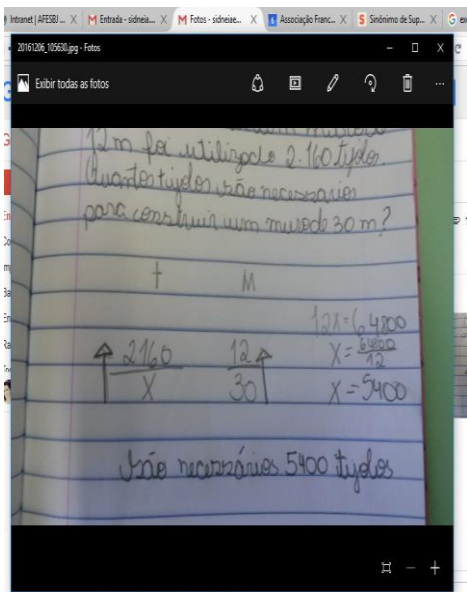 Intranet | AFESBJ ...
Entrada - sidneia...
Fotos - sidneiae...
Associação Franc...
Sinônimo de Sup...
20161206_105630.jpg - Fotos
Exibir todas as fotos
12 m foi utilizado 2.160 tijolos.
Quantos tijolos são necessários
para construir um muro de 30 m?
t M
2160 12
X 30
12X = 64800
X = 64800
12
X = 5400
São necessários 5400 tijolos